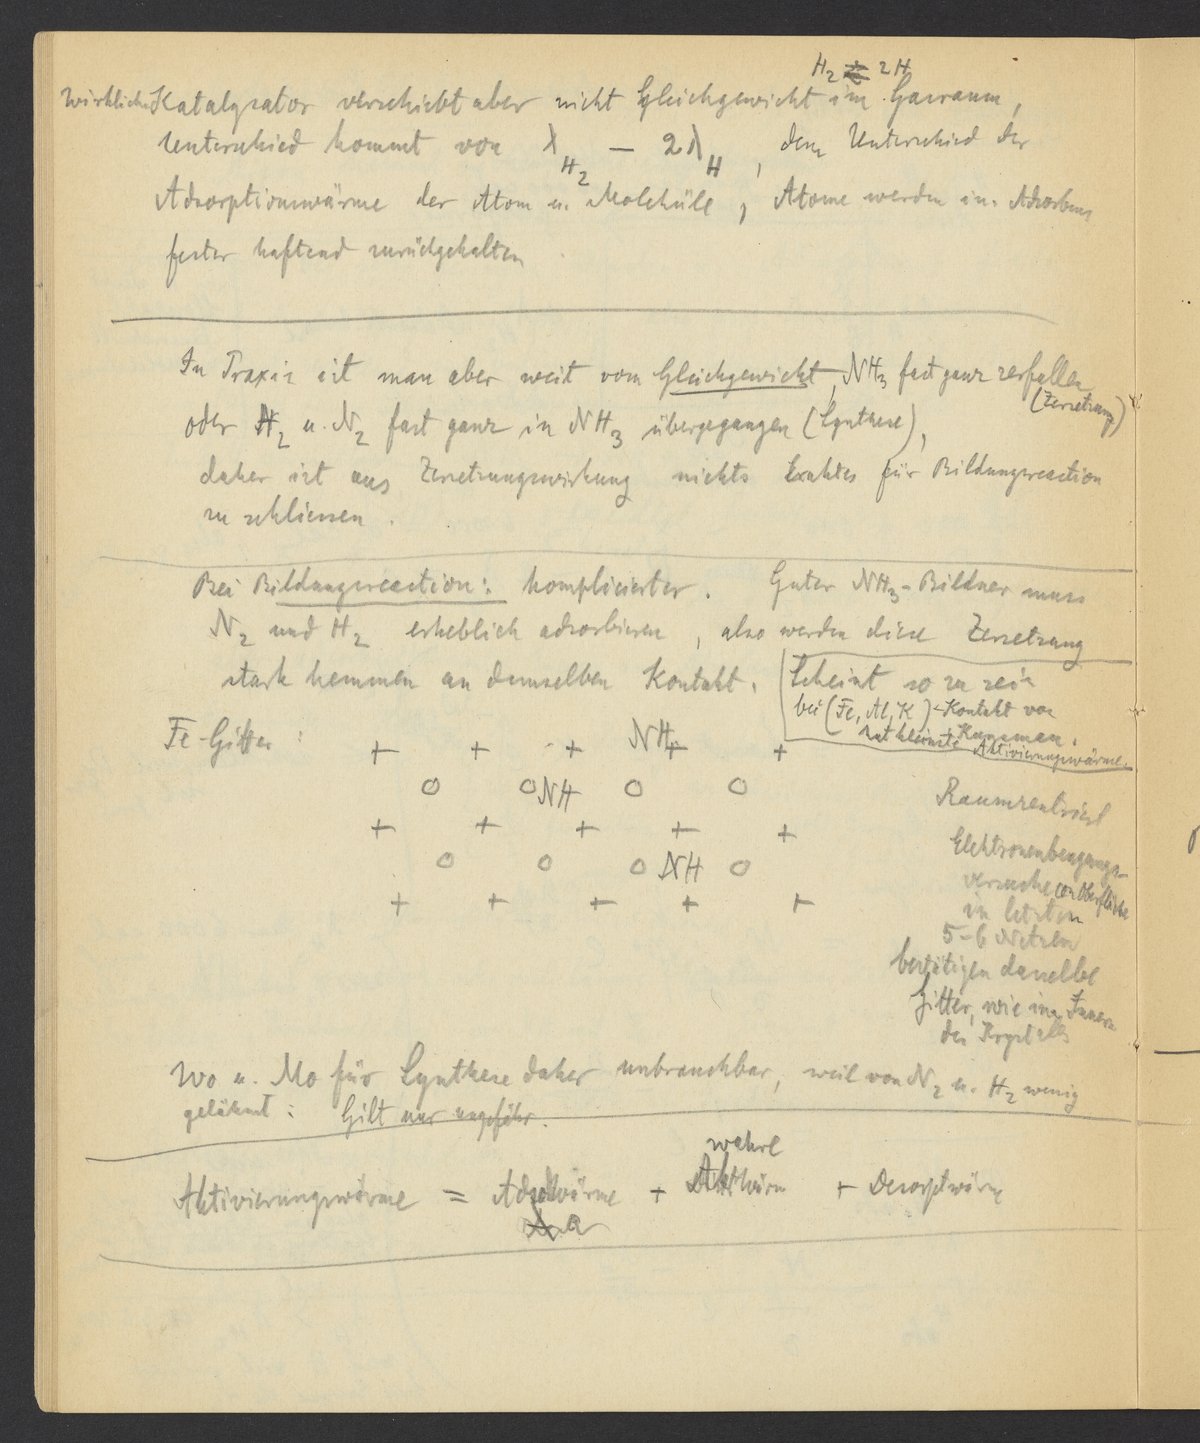 H₂ ⇄ 2H
Wirklicher Katalysator verschiebt aber nicht Gleichgewicht im Gasraum,
Unterschied kommt von λ_H₂ – 2λ_H, dem Unterschied der
Adsorptionswärme der Atom u. Moleküle, Atome werden im Adsorbens
fester haftend zurückgehalten
In Praxis ist man aber weit vom Gleichgewicht, NH₃ fast ganz zerfallen
(Zersetzung)
oder H₂ u. N₂ fast ganz in NH₃ übergegangen (Synthese),
daher ist aus Zersetzungswirkung nichts Exaktes für Bildungsreaction
zu schliessen.
Bei Bildungsreaction: komplicierter. Guter NH₃-Bildner muss
N₂ und H₂ erheblich adsorbieren, also werden diese Zersetzung
stark hemmen an demselben Kontakt.
Scheint so zu sein
bei (Fe, Al, K)-Kontakt von
Kunsman.
hat kleinste Aktivierungswärme.
Fe-Gitter:
+ + + NH₃ + +
o o NH o o
+ + + + +
o o o NH o
+ + + + +
Raumzentriert
Elektronenbeugungs-
versuche an Oberfläche
in letzten
5-6 Netzen
bestätigen dasselbe
Gitter, wie im Innern
des Krystalls
Wo u. Mo für Synthese daher unbrauchbar, weil von N₂ u. H₂ wenig
gelähmt: Gilt nur ungefähr.
wahre
Aktivierungswärme = Adswärme + Aktwärm + Desorptwärme